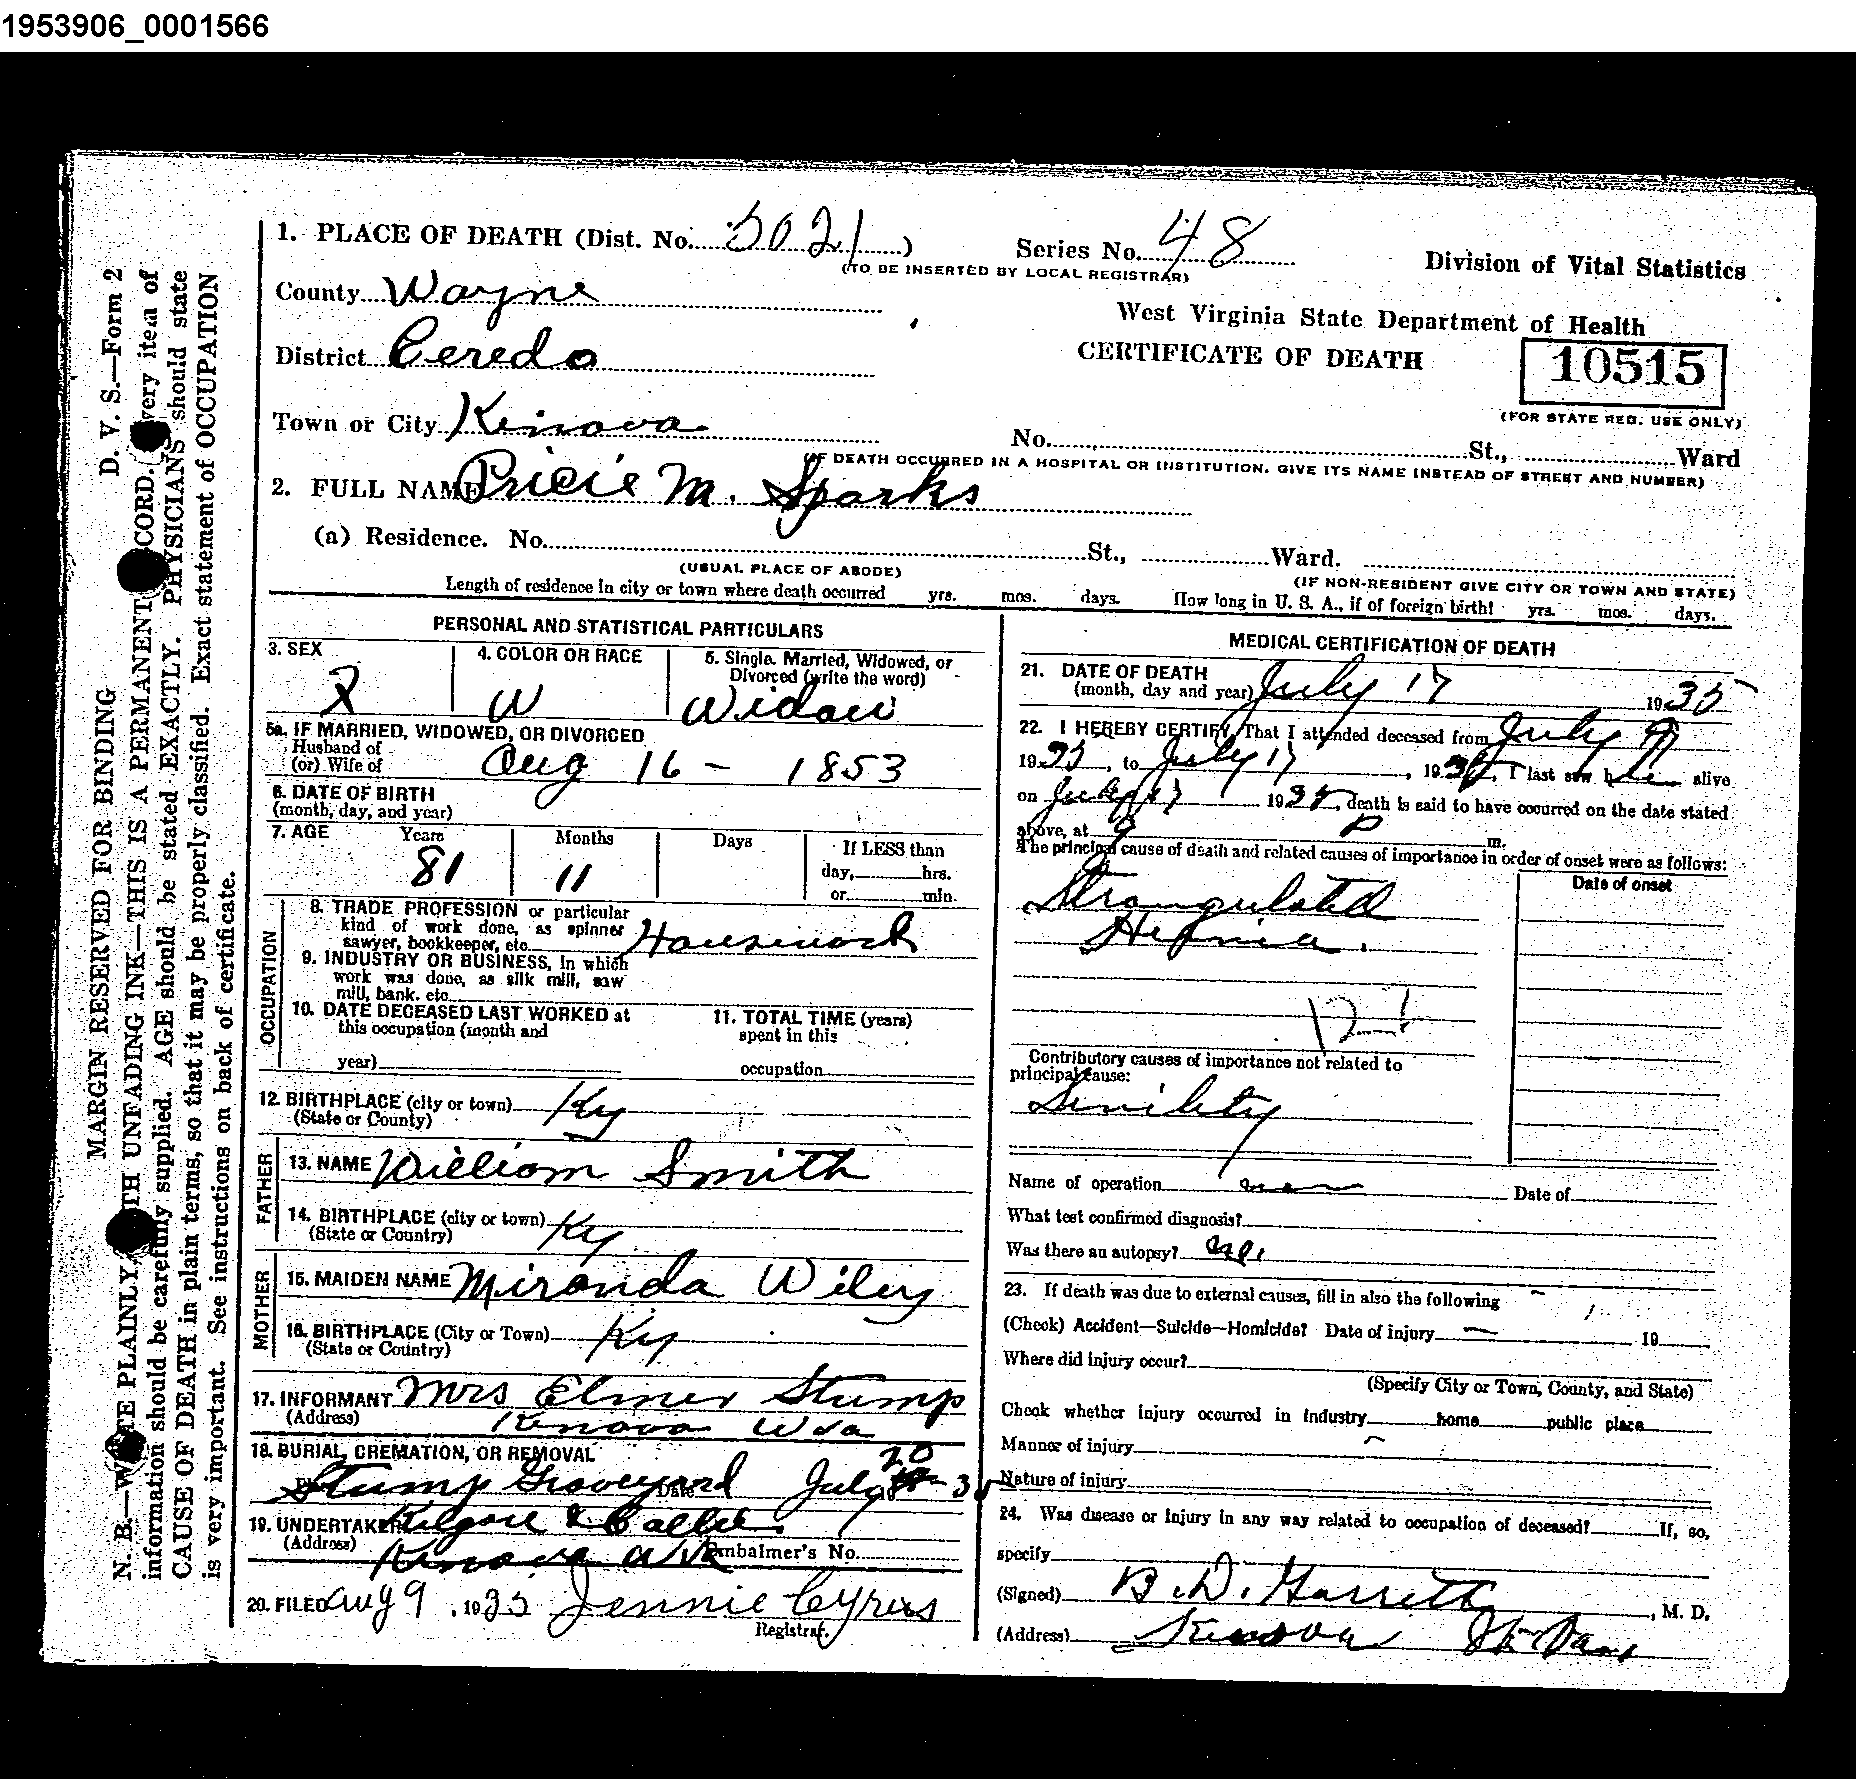 1953906_0001566
1. PLACE OF DEATH (Dist. No. 5021)
Series No. 48
(TO BE INSERTED BY LOCAL REGISTRAR)
Division of Vital Statistics
County Wayne
West Virginia State Department of Health
District Ceredo
CERTIFICATE OF DEATH
10515
(FOR STATE REG. USE ONLY)
Town or City Kenova
No. St., Ward
(IF DEATH OCCURRED IN A HOSPITAL OR INSTITUTION, GIVE ITS NAME INSTEAD OF STREET AND NUMBER)
2. FULL NAME Pricie M. Sparks
(a) Residence. No. St., Ward.
(USUAL PLACE OF ABODE)
(IF NON-RESIDENT GIVE CITY OR TOWN AND STATE)
Length of residence in city or town where death occurred yrs. mos. days. How long in U. S. A., if of foreign birth? yrs. mos. days.
PERSONAL AND STATISTICAL PARTICULARS
3. SEX
4. COLOR OR RACE
W
5. Single, Married, Widowed, or
Divorced (write the word)
Widow
5a. IF MARRIED, WIDOWED, OR DIVORCED
Husband of
(or) Wife of
Aug 16 - 1853
6. DATE OF BIRTH
(month, day, and year)
7. AGE Years Months Days If LESS than
81 11 day, hrs.
or min.
OCCUPATION
8. TRADE PROFESSION or particular
kind of work done, as spinner
sawyer, bookkeeper, etc. Housework
9. INDUSTRY OR BUSINESS, in which
work was done, as silk mill, saw
mill, bank, etc.
10. DATE DECEASED LAST WORKED at
this occupation (month and
year)
11. TOTAL TIME (years)
spent in this
occupation
12. BIRTHPLACE (city or town) Ky
(State or County)
FATHER
13. NAME William Smith
14. BIRTHPLACE (city or town) Ky
(State or Country)
MOTHER
15. MAIDEN NAME Miranda Wiley
16. BIRTHPLACE (City or Town) Ky
(State or Country)
17. INFORMANT Mrs Elmer Stump
(Address) Kenova W Va
18. BURIAL, CREMATION, OR REMOVAL
Stump Graveyard Date July 20 35
19. UNDERTAKER Kilgore &
(Address) Kenova W Va Embalmer's No.
20. FILED Aug 9, 1935 Jennie Cyrus
Registrar.
MEDICAL CERTIFICATION OF DEATH
21. DATE OF DEATH
(month, day and year) July 17 1935
22. I HEREBY CERTIFY, That I attended deceased from July 9
1935, to July 17, 1935, I last saw her alive
on July 17 1935, death is said to have occurred on the date stated
above, at 9 P m.
The principal cause of death and related causes of importance in order of onset were as follows:
Date of onset
Strangulated
Hernia.
Contributory causes of importance not related to
principal cause:
Senility
Name of operation Date of
What test confirmed diagnosis?
Was there an autopsy? no.
23. If death was due to external causes, fill in also the following
(Check) Accident—Suicide—Homicide? Date of injury 19
Where did injury occur?
(Specify City or Town, County, and State)
Check whether injury occurred in industry home public place
Manner of injury
Nature of injury
24. Was disease or injury in any way related to occupation of deceased? If, so,
specify
(Signed) B. D. Garrett, M. D.
(Address) Kenova
D. V. S.—Form 2
MARGIN RESERVED FOR BINDING
N. B.—WRITE PLAINLY, WITH UNFADING INK—THIS IS A PERMANENT RECORD. Every item of
information should be carefully supplied. AGE should be stated EXACTLY. PHYSICIANS should state
CAUSE OF DEATH in plain terms, so that it may be properly classified. Exact statement of OCCUPATION
is very important. See instructions on back of certificate.